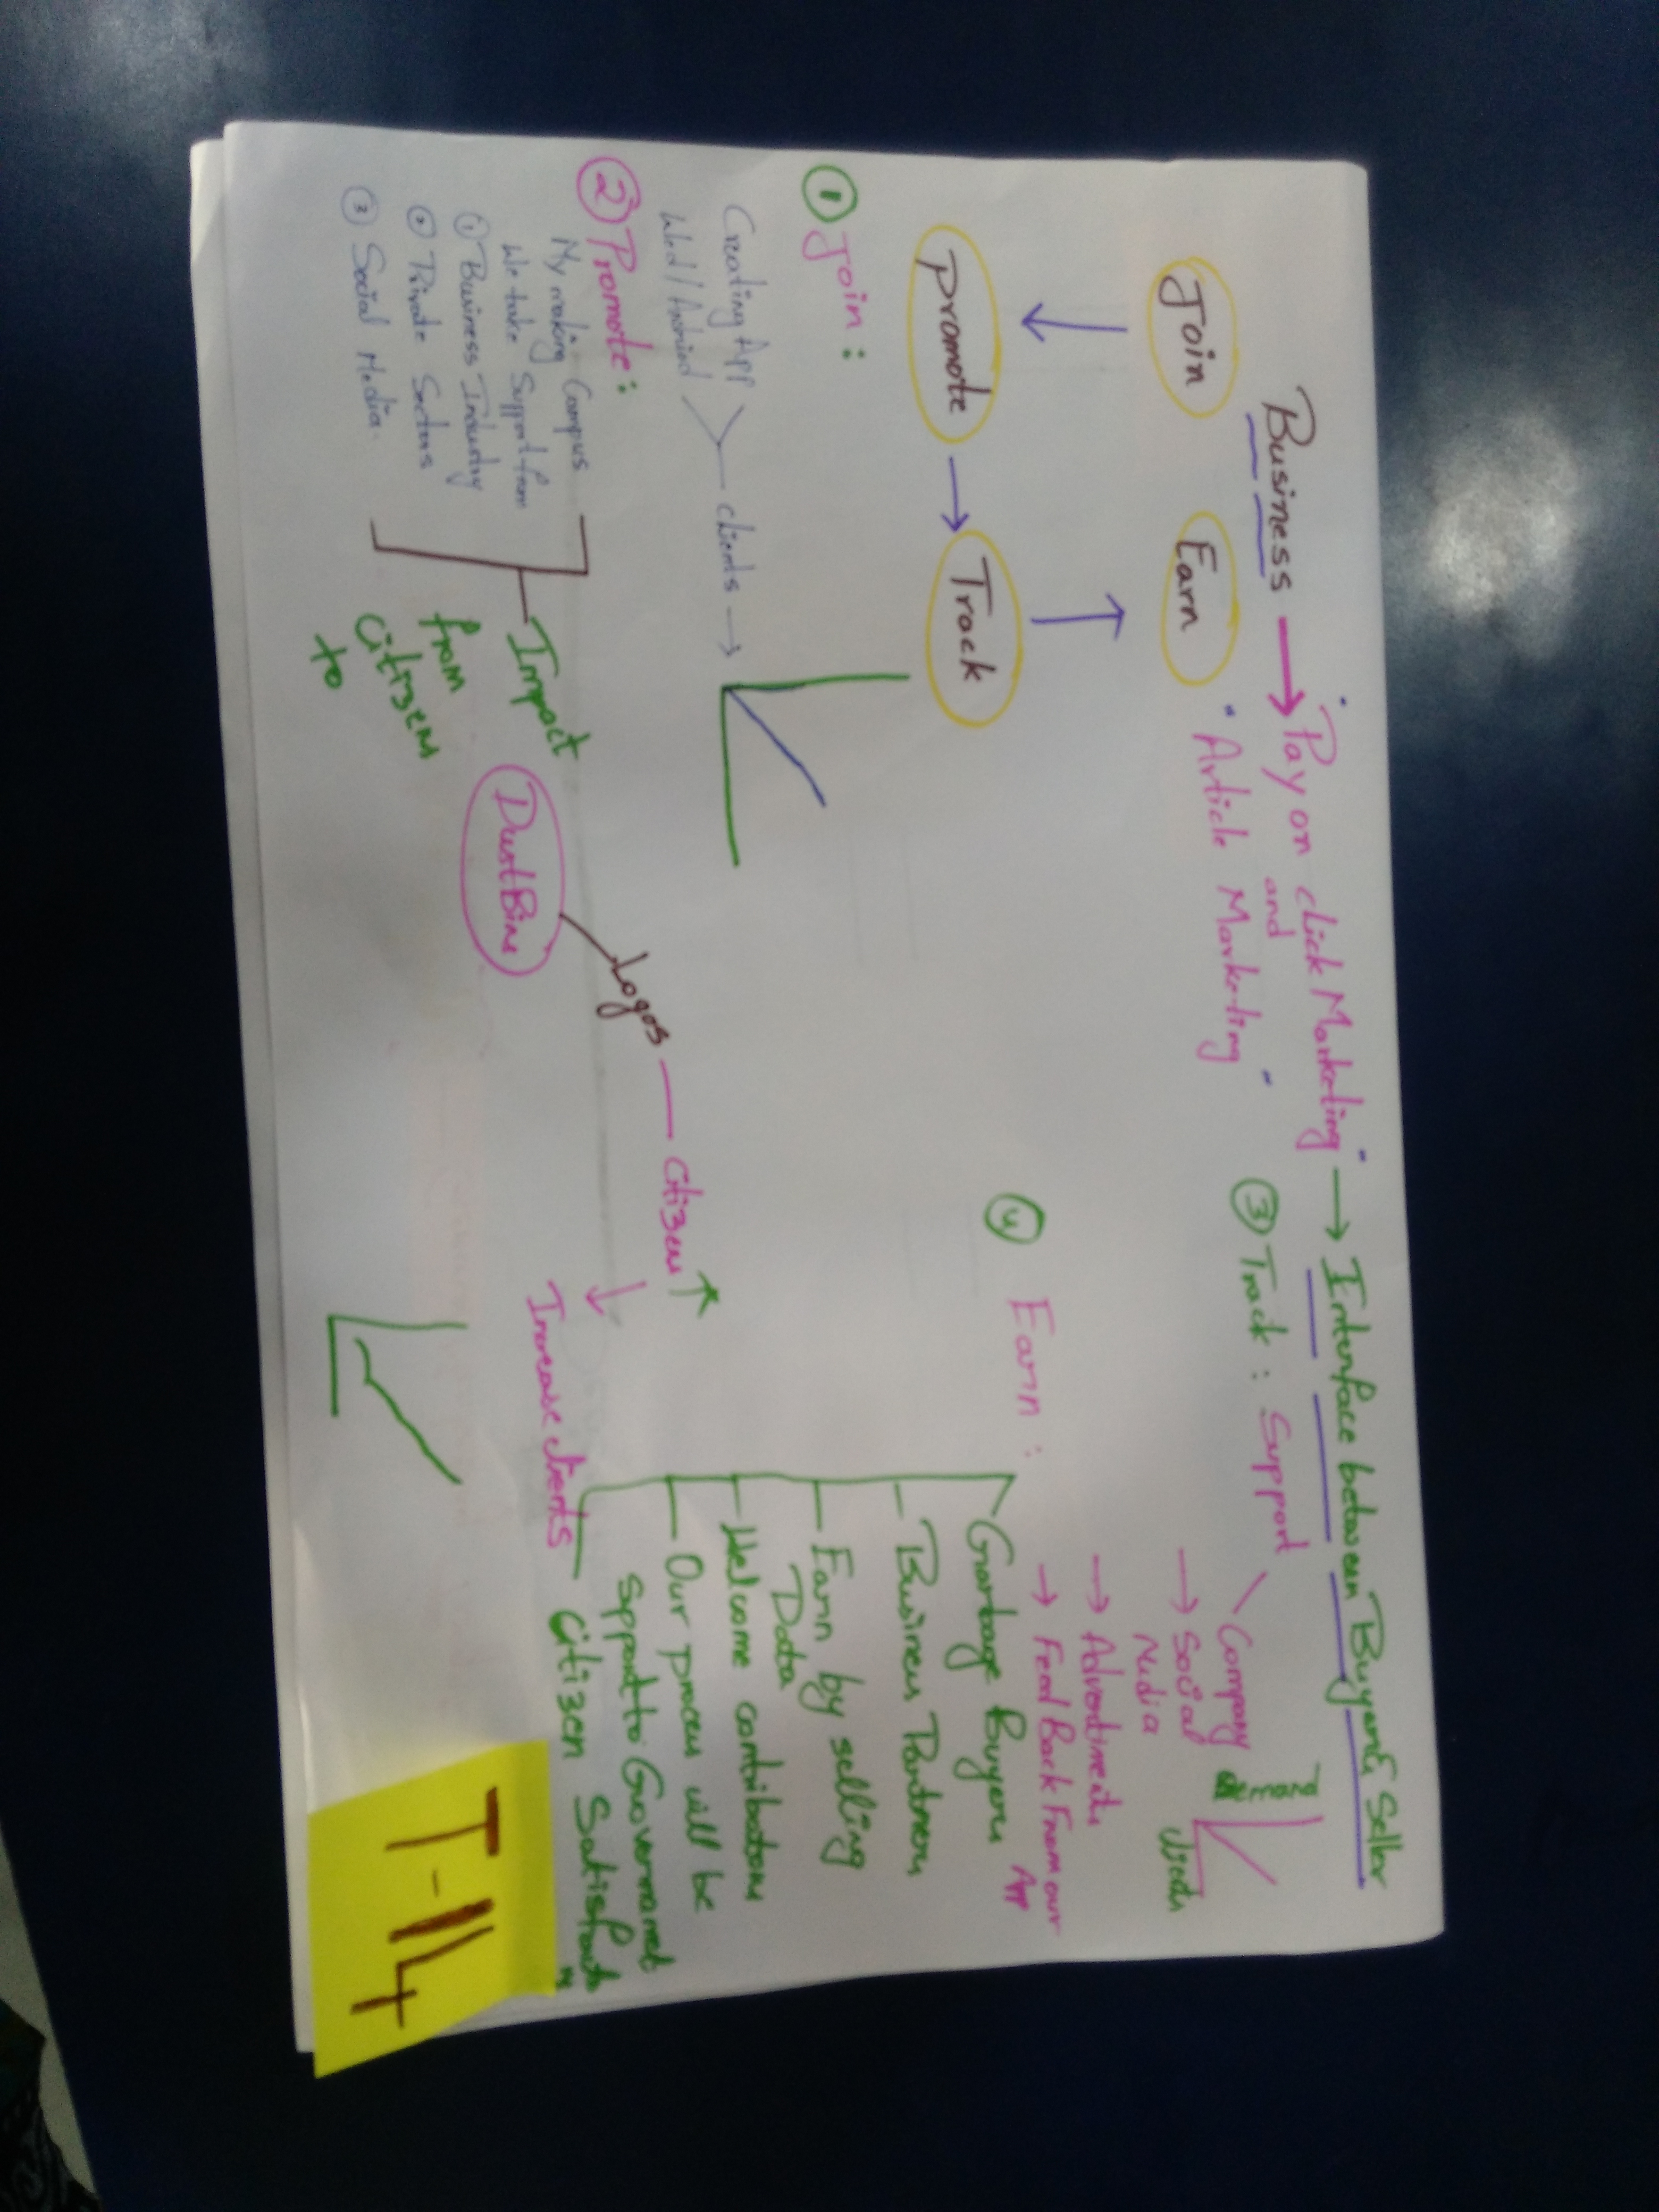 Business → "Pay on click Marketing" → Interface between Buyer & Seller
and
"Article Marketing"
Join Earn
promote → Track
① Join :
Creating App
clients →
② Promote :
My making Campus
We take Support from
① Business Industry
② Private Sectors
③ Social Media.
Impact
from
Citizens
to
DustBins
Logos — Citizen ↑
Increase clients
③ Track : Support
Company
→ Social
Media
→ Advertiments
→ Feed Back From our
App
demand
④ Earn :
Garbage Buyers
Business Partners
Earn by selling
Data
Welcome contributors
Our process will be
Support to Government
Citizen
T-114